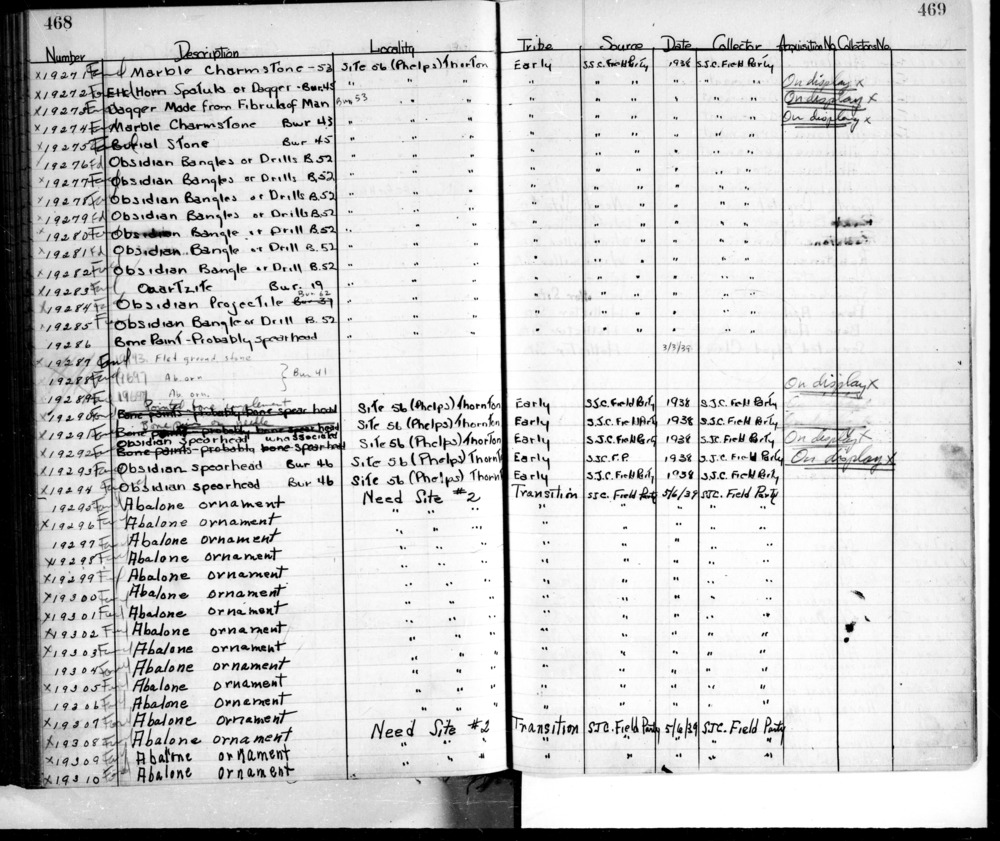 468
469
Number Description Locality Tribe Source Date Collector Acquisition No. Collectors No.
x19271 Marble Charmstone - 53 Site 56 (Phelps) Thornton Early S.J.C. Field Party 1938 S.J.C. Field Party
x19272 Elk Horn Spatula or Dagger - Bur. 45 " " " " " " " " " " On display x
x19273 Dagger Made from Fibula of Man Bur 53 " " " " " " " " " " On display x
x19274 Marble Charmstone Bur 43 " " " " " " " " " " On display x
x19275 Burial Stone Bur 45 " " " " " " " " " "
x19276 Obsidian Bangles or Drills B.52 " " " " " " " " " "
x19277 Obsidian Bangles or Drills B.52 " " " " " " " " " "
x19278 Obsidian Bangles or Drills B.52 " " " " " " " " " "
x19279 Obsidian Bangles or Drills B.52 " " " " " " " " " "
x19280 Obsidian Bangle or Drill B.52 " " " " " " " " " "
x19281 Obsidian Bangle or Drill B.52 " " " " " " " " " "
x19282 Obsidian Bangle or Drill B.52 " " " " " " " " " "
x19283 Quartzite Bur. 19 " " " " " " " " " "
x19284 Obsidian Projectile " " " " " " " " " "
x19285 Obsidian Bangle or Drill B.52 " " " " " " " " " "
19286 Bone Point - Probably spearhead " 3/3/39
x19287 Flat ground stone
x19288 Ab orn } Bur 41 On display x
x19289 Ab. orn.
x19290 Bone points - probably bone spear head Site 56 (Phelps) Thornton Early S.J.C. Field Party 1938 S.J.C. Field Party
x19291 Bone points - probably bone spear head Site 56 (Phelps) Thornton Early S.J.C. Field Party 1938 S.J.C. Field Party
Obsidian spearhead unassociated Site 56 (Phelps) Thornton Early S.J.C. Field Party 1938 S.J.C. Field Party On display x
x19292 Bone points - probably bone spear head
x19293 Obsidian spearhead Bur 46 Site 56 (Phelps) Thornt Early S.J.C. F.P. 1938 S.J.C. Field Party On display x
x19294 Obsidian spearhead Bur 46 Site 56 (Phelps) Thorn Early S.J.C. Field Party 1938 S.J.C. Field Party
19295 Abalone ornament Need Site #2 Transition S.J.C. Field Party 5/6/39 S.J.C. Field Party
x19296 Abalone ornament " " " " " " " "
19297 Abalone ornament " " " " " " " "
x19298 Abalone ornament " " " " " " " "
x19299 Abalone ornament " " " " " " " "
x19300 Abalone ornament " " " " " " " "
x19301 Abalone ornament " " " " " " " "
x19302 Abalone ornament " " " " " " " "
x19303 Abalone ornament " " " " " " " "
19304 Abalone ornament " " " " " " " "
x19305 Abalone ornament " " " " " " " "
19306 Abalone ornament " " " " " " " "
x19307 Abalone ornament Need Site #2 Transition S.J.C. Field Party 5/6/39 S.J.C. Field Party
x19308 Abalone ornament " " " " " " " "
x19309 Abalone ornament " " " " " " " "
x19310 Abalone ornament